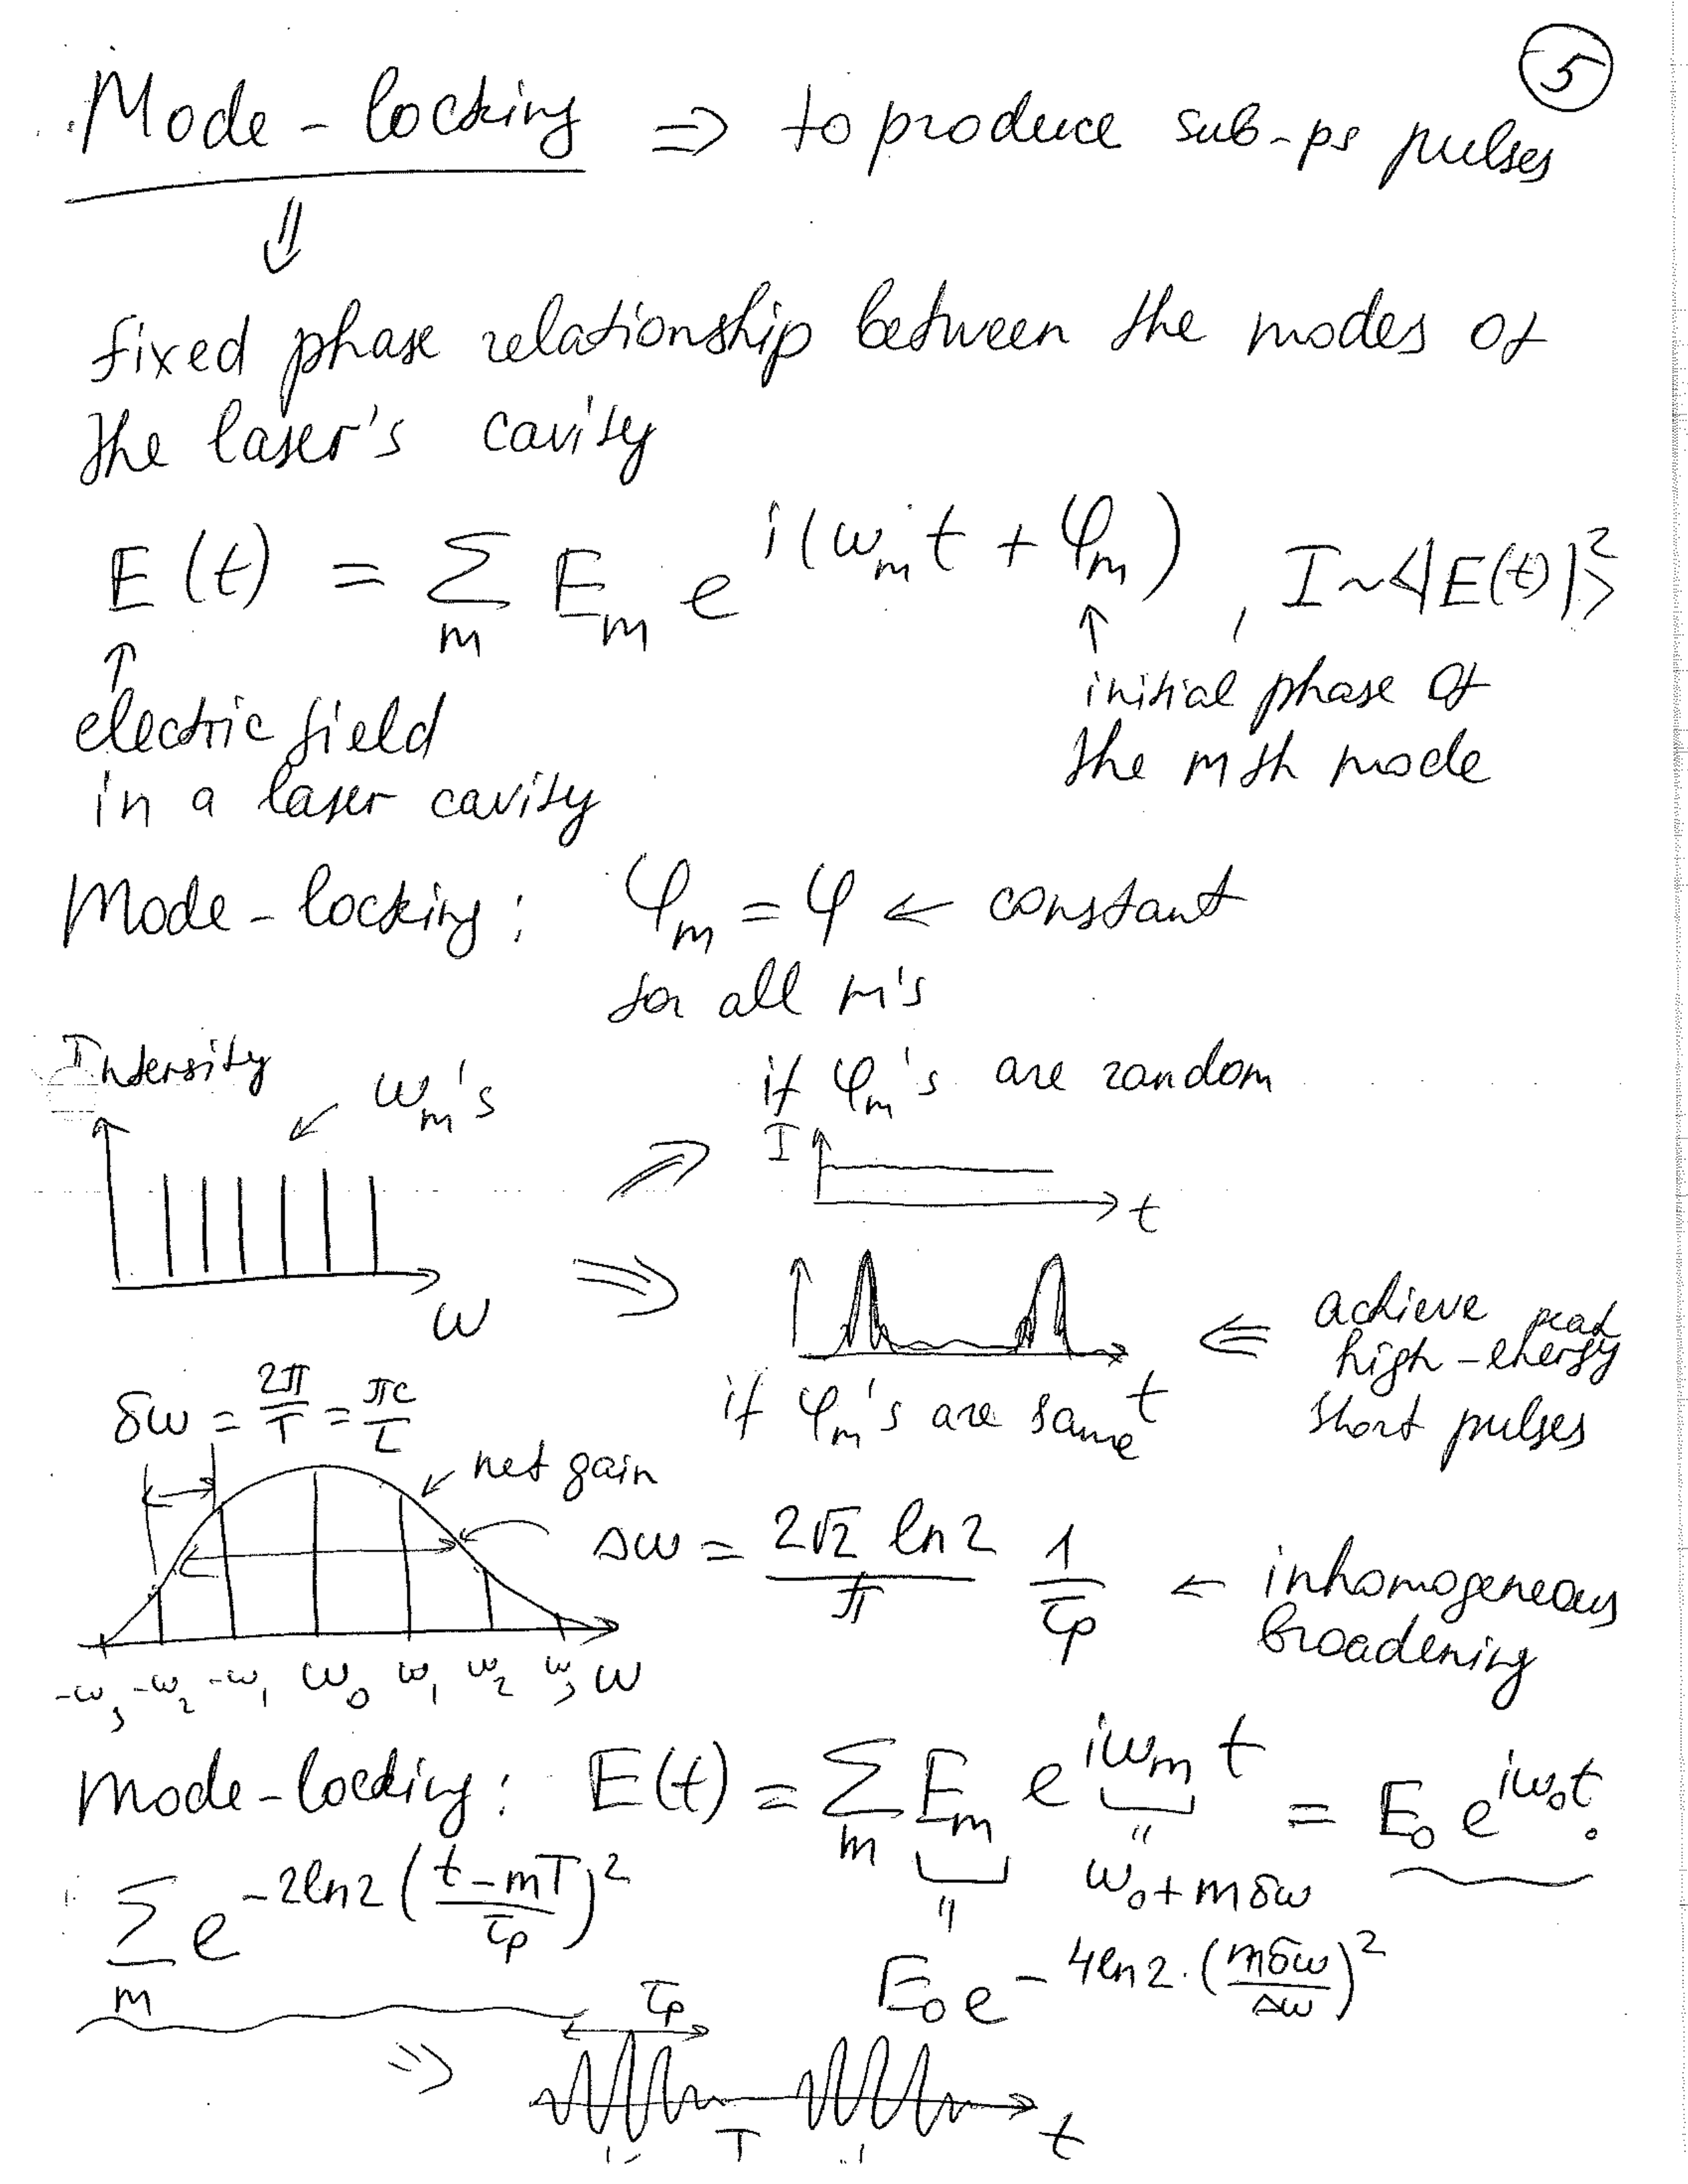 5
Mode-locking ⇒ to produce sub-ps pulses
⇓
fixed phase relationship between the modes of
the laser's cavity
E(t) = Σ_m E_m e^{i(ω_m t + φ_m)} , I ~ <|E(t)|²>
↑ electric field
in a laser cavity
↑ initial phase of
the mth mode
Mode-locking: φ_m = φ ← constant
for all m's
Intensity
ω_m's
ω
if φ_m's are random
I
t
t
if φ_m's are same
⇐ achieve peak
high-energy
short pulses
δω = 2π/T = πc/L
net gain
Δω = (2√2 ln2)/π 1/τ_p ← inhomogeneous
broadening
-ω_3 -ω_2 -ω_1 ω_0 ω_1 ω_2 ω_3 ω
Mode-locking: E(t) = Σ_m E_m e^{iω_m t} = E_0 e^{iω_0 t} ·
Σ_m e^{-2ln2 ((t-mT)/τ_p)²}
ω_0 + mδω
E_0 e^{-4ln2·(mδω/Δω)²}
τ_p
⇒
T
t